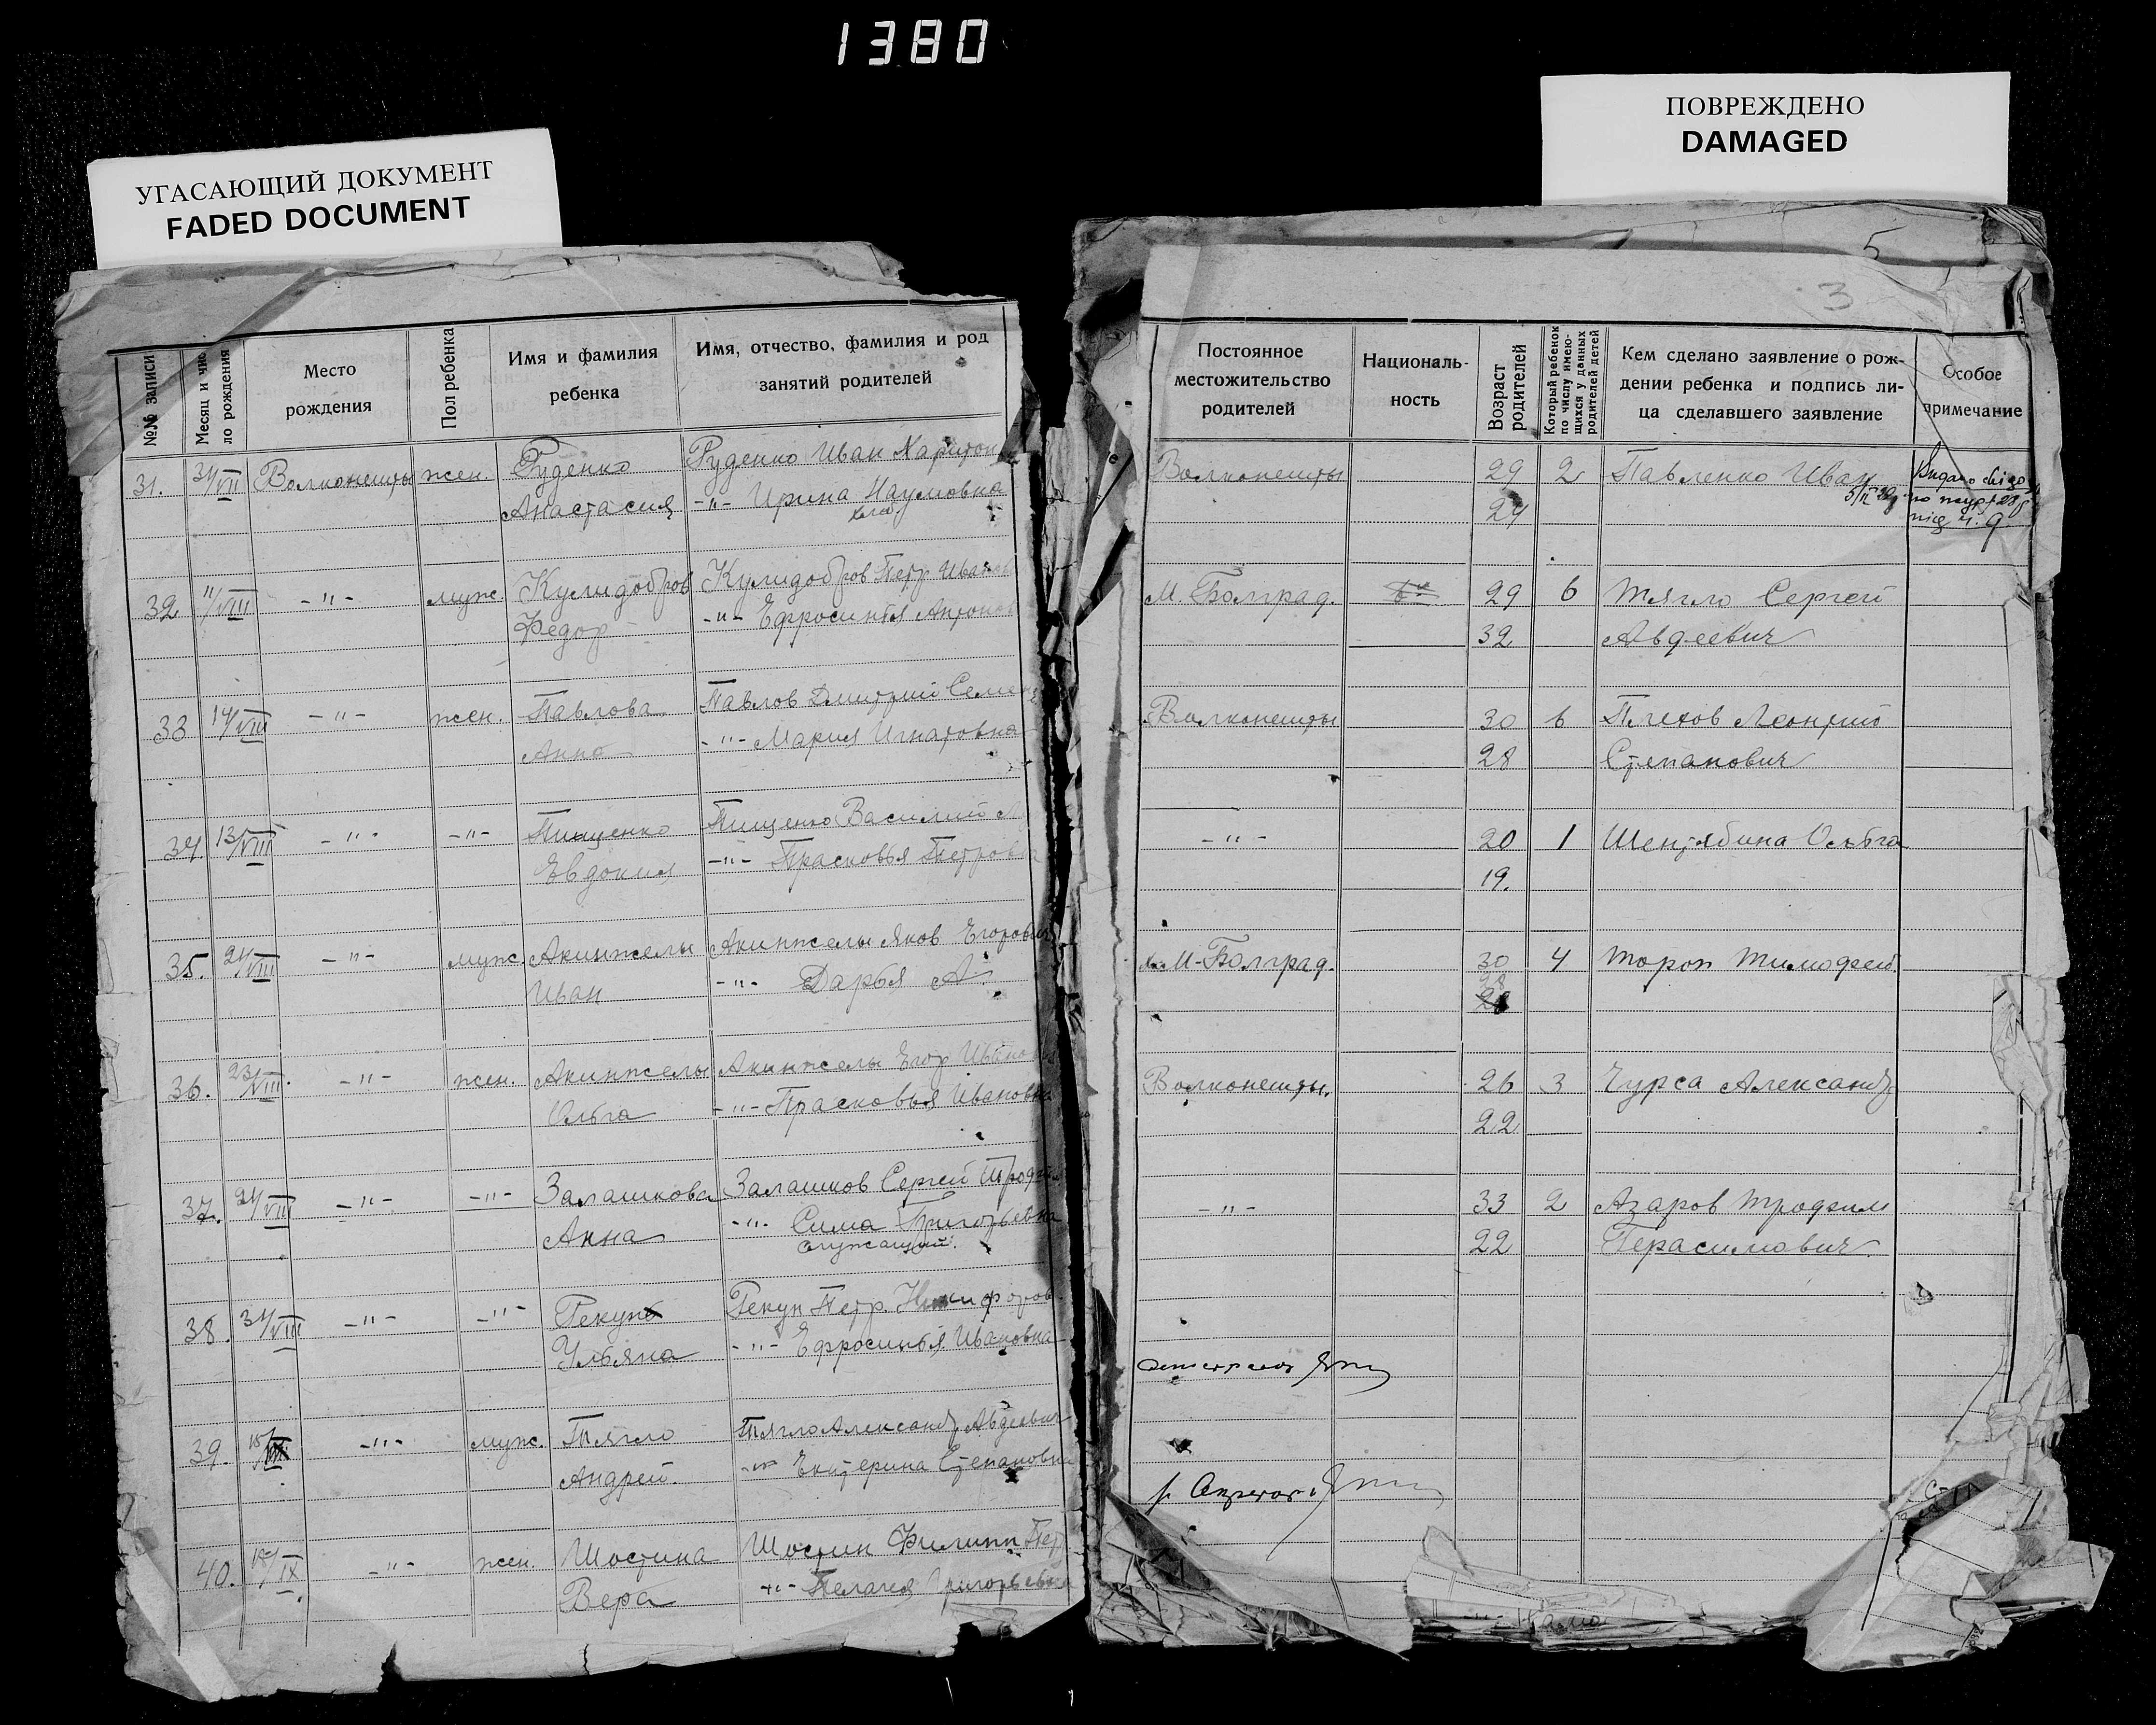 1380
УГАСАЮЩИЙ ДОКУМЕНТ
FADED DOCUMENT
ПОВРЕЖДЕНО
DAMAGED
5
3
№№ записи
Месяц и чис
ло рождения
Место
рождения
Пол ребенка
Имя и фамилия
ребенка
Имя, отчество, фамилия и род
занятий родителей
31. 31/VII Волконешты жен. Руденко Руденко Иван Харитон
Анастасия -"- Ирина Наумовна
32 11/VIII -"- муж. Кулидобров Кулидобров Петр Иванов
Федор -"- Ефросиния Антонов
33 14/VIII -"- жен. Павлова Павлов Дмитрий Семен
Анна -"- Мария Игнатовна
34. 13/VIII -"- -"- Пищенко Пищенко Василий
Евдокия -"- Прасковья Петровна
35. 21/VIII -"- муж. Акинжелы Акинжелы Яков Егорович
Иван -"- Дарья А.
36. 23/VIII. -"- жен. Акинжелы Акинжелы Егор Иванов
Ольга -"- Прасковья Ивановна
37. 24/VIII -"- -"- Залашкова Залашков Сергей Трофим
Анна -"- Сима Григорьевна
служащий.
38. 31/VIII -"- -"- Рекун Рекун Петр. Никифоров.
Ульяна -"- Ефросинья Ивановна
39. 15/ -"- муж. Тягло Тягло Александр Авдеевич
Андрей. -"- Екатерина Степановна
40. /IX -"- жен. Шостина Шостин Филипп Пет
Вера -"- Пелагея Григорьевна
Постоянное
местожительство
родителей
Националь-
ность
Возраст
родителей
Который ребенок
по числу имею-
щихся у данных
родителей детей
Кем сделано заявление о рож-
дении ребенка и подпись ли-
ца сделавшего заявление
Особое
примечание
Волконешты 29 2 Павленко Иван
24
М. Болград. 29 6 Тягло Сергей
32 Авдеевич
Волконешты 30 6 Плехов Леонтий
28 Степанович
-"- 20 1 Шентябина Ольга
19.
М-Болград. 30 4 Тороп Тимофей.
28
Волконешты. 26 3 Чурса Александр
22
-"- 33 2 Азаров Трофим
22 Герасимович